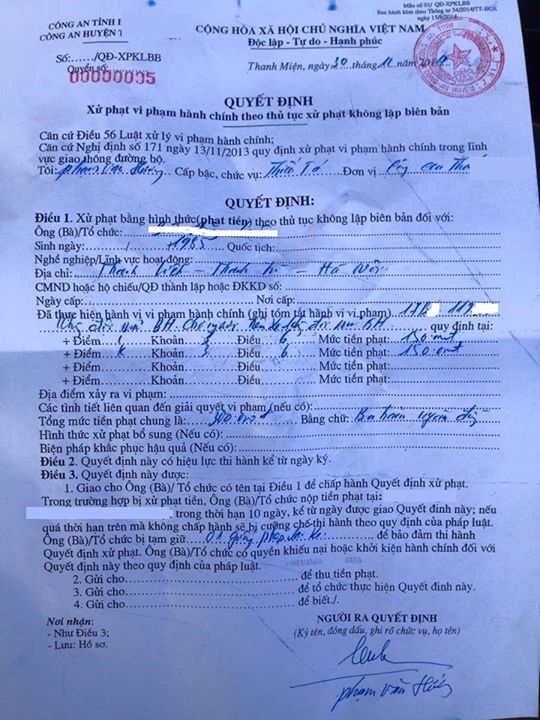 Mẫu số 01/ QĐ-XPKLBB
Ban hành kèm theo Thông tư 34/2014/TT-BCA
ngày 15/8/2014
CÔNG AN TỈNH
CÔNG AN HUYỆN T
CỘNG HÒA XÃ HỘI CHỦ NGHĨA VIỆT NAM
Độc lập - Tự do - Hạnh phúc
Số:....../QĐ-XPKLBB
Quyển số:
00000005
Thanh Miện, ngày 30 tháng 11 năm
QUYẾT ĐỊNH
Xử phạt vi phạm hành chính theo thủ tục xử phạt không lập biên bản
Căn cứ Điều 56 Luật xử lý vi phạm hành chính;
Căn cứ Nghị định số 171 ngày 13/11/2013 quy định xử phạt vi phạm hành chính trong lĩnh
vực giao thông đường bộ.
Tôi: Phạm Văn Cấp bậc, chức vụ: Thiếu tá Đơn vị Công an
QUYẾT ĐỊNH:
Điều 1. Xử phạt bằng hình thức (phạt tiền) theo thủ tục không lập biên bản đối với:
Ông (Bà)/Tổ chức:
Sinh ngày: / /1985 Quốc tịch:
Nghề nghiệp/Lĩnh vực hoạt động:
Địa chỉ: Thanh - Thanh - Hà Nội
CMND hoặc hộ chiếu/QĐ thành lập hoặc ĐKKD số:
Ngày cấp: Nơi cấp:
Đã thực hiện hành vi vi phạm hành chính (ghi tóm tắt hành vi vi phạm) 17B
đội mũ BH. Chở người không đội mũ BH quy định tại:
+ Điểm i Khoản 3 Điều 6 Mức tiền phạt: 150.000đ
+ Điểm k Khoản 3 Điều 6 Mức tiền phạt: 150.000đ
+ Điểm Khoản Điều Mức tiền phạt:
+ Điểm Khoản Điều Mức tiền phạt:
Địa điểm xảy ra vi phạm:
Các tình tiết liên quan đến giải quyết vi phạm (nếu có):
Tổng mức tiền phạt chung là: 300.000đ Bằng chữ: Ba trăm ngàn đồng
Hình thức xử phạt bổ sung (Nếu có):
Biện pháp khắc phục hậu quả (Nếu có):
Điều 2. Quyết định này có hiệu lực thi hành kể từ ngày ký.
Điều 3. Quyết định này được:
1. Giao cho Ông (Bà)/ Tổ chức có tên tại Điều 1 để chấp hành Quyết định xử phạt.
Trong trường hợp bị xử phạt tiền, Ông (Bà)/Tổ chức nộp tiền phạt tại:
trong thời hạn 10 ngày, kể từ ngày được giao Quyết định này; nếu
quá thời hạn trên mà không chấp hành sẽ bị cưỡng chế thi hành theo quy định của pháp luật.
Ông (Bà)/Tổ chức bị tạm giữ 01 giấy phép lái xe để bảo đảm thi hành
Quyết định xử phạt. Ông (Bà)/Tổ chức có quyền khiếu nại hoặc khởi kiện hành chính đối với
Quyết định này theo quy định của pháp luật.
2. Gửi cho để thu tiền phạt.
3. Gửi cho để tổ chức thực hiện Quyết định này.
4. Gửi cho để biết./.
Nơi nhận:
- Như Điều 3;
- Lưu: Hồ sơ.
NGƯỜI RA QUYẾT ĐỊNH
(Ký tên, đóng dấu, ghi rõ chức vụ, họ tên)
Phạm Văn